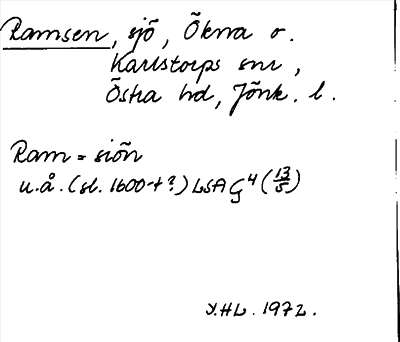 Ramsen, sjö, Ökna o.
Karlstorps snr,
Östra hd, Jönk. l.
Ram = siön
u.å. (sl. 1600-t?) LSA G4 (13/5)
Y.HL. 1972.